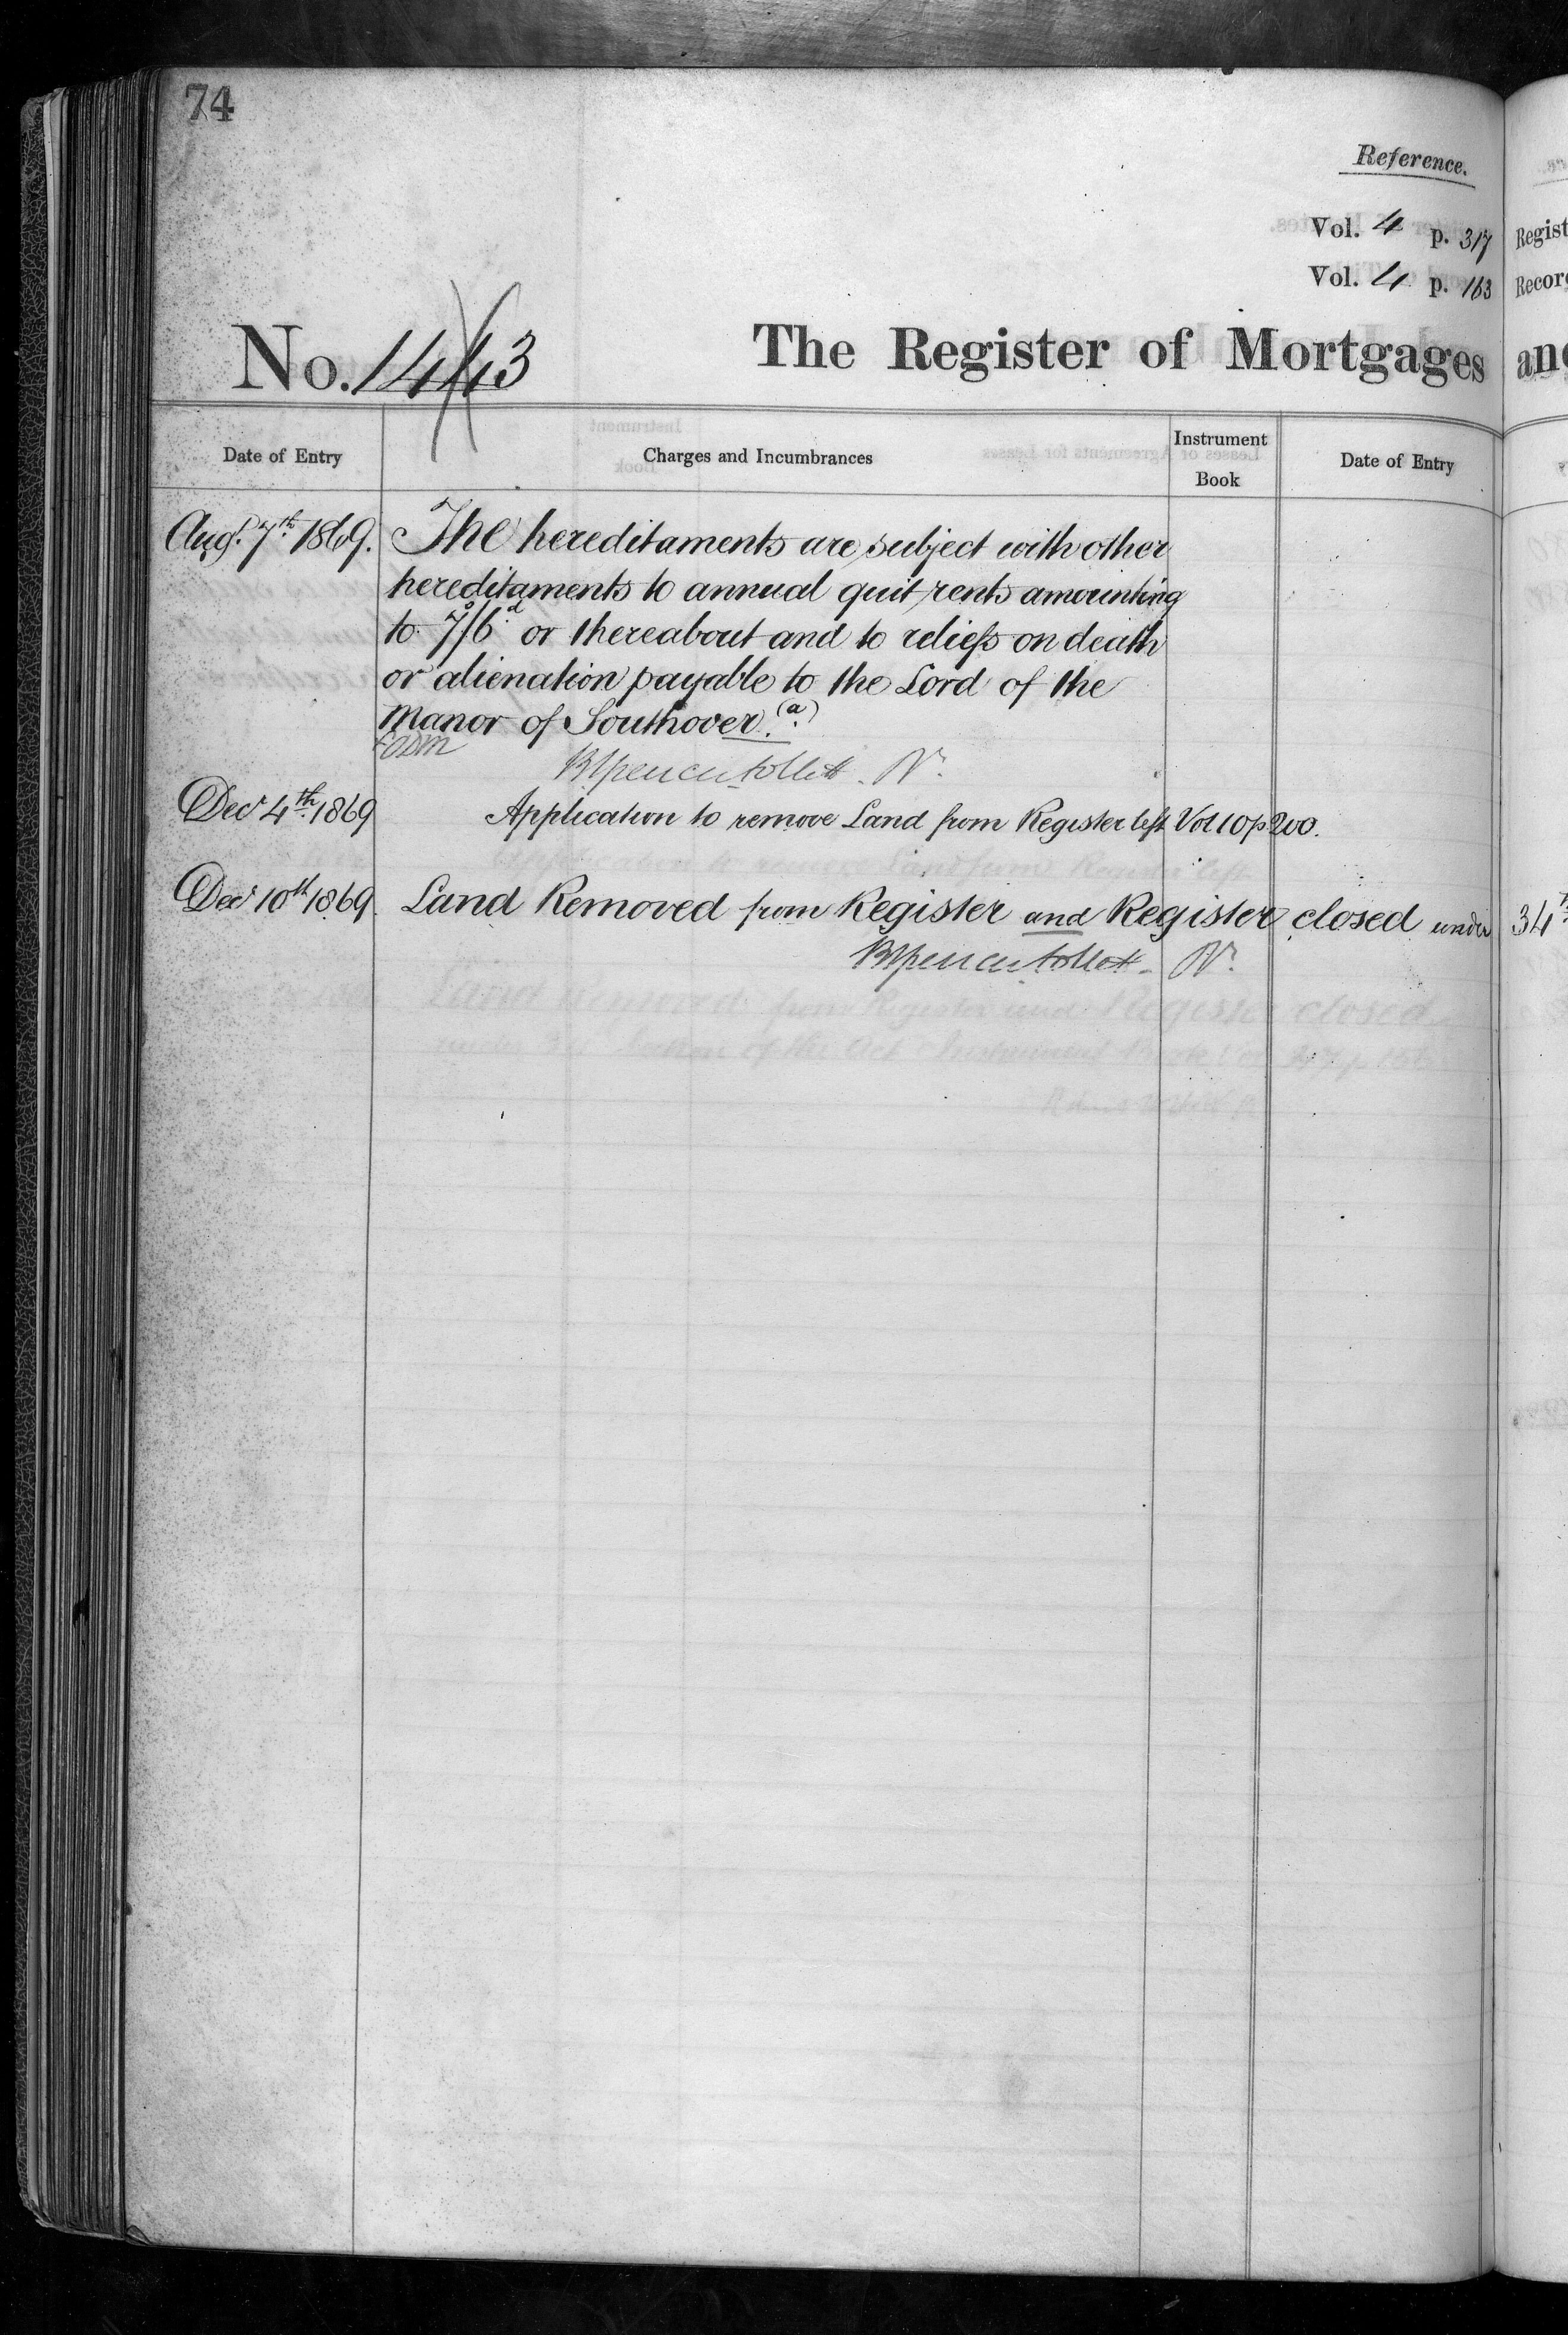 74
Reference.
Vol. 4 p. 317
Vol. 4 p. 163
Regist
Recor
No. 1443
The Register of Mortgages an
Date of Entry
Charges and Incumbrances
Instrument Book
Date of Entry
Augt. 7th. 1869. The hereditaments are subject with other
hereditaments to annual quit rents amounting
to 7s/6d. or thereabout and to reliefs on death
or alienation payable to the Lord of the
Manor of Southover. (a)
Decr 4th. 1869 Application to remove Land from Register left Vol 10 p 200.
Decr 10th 1869. Land Removed from Register and Register closed under 34